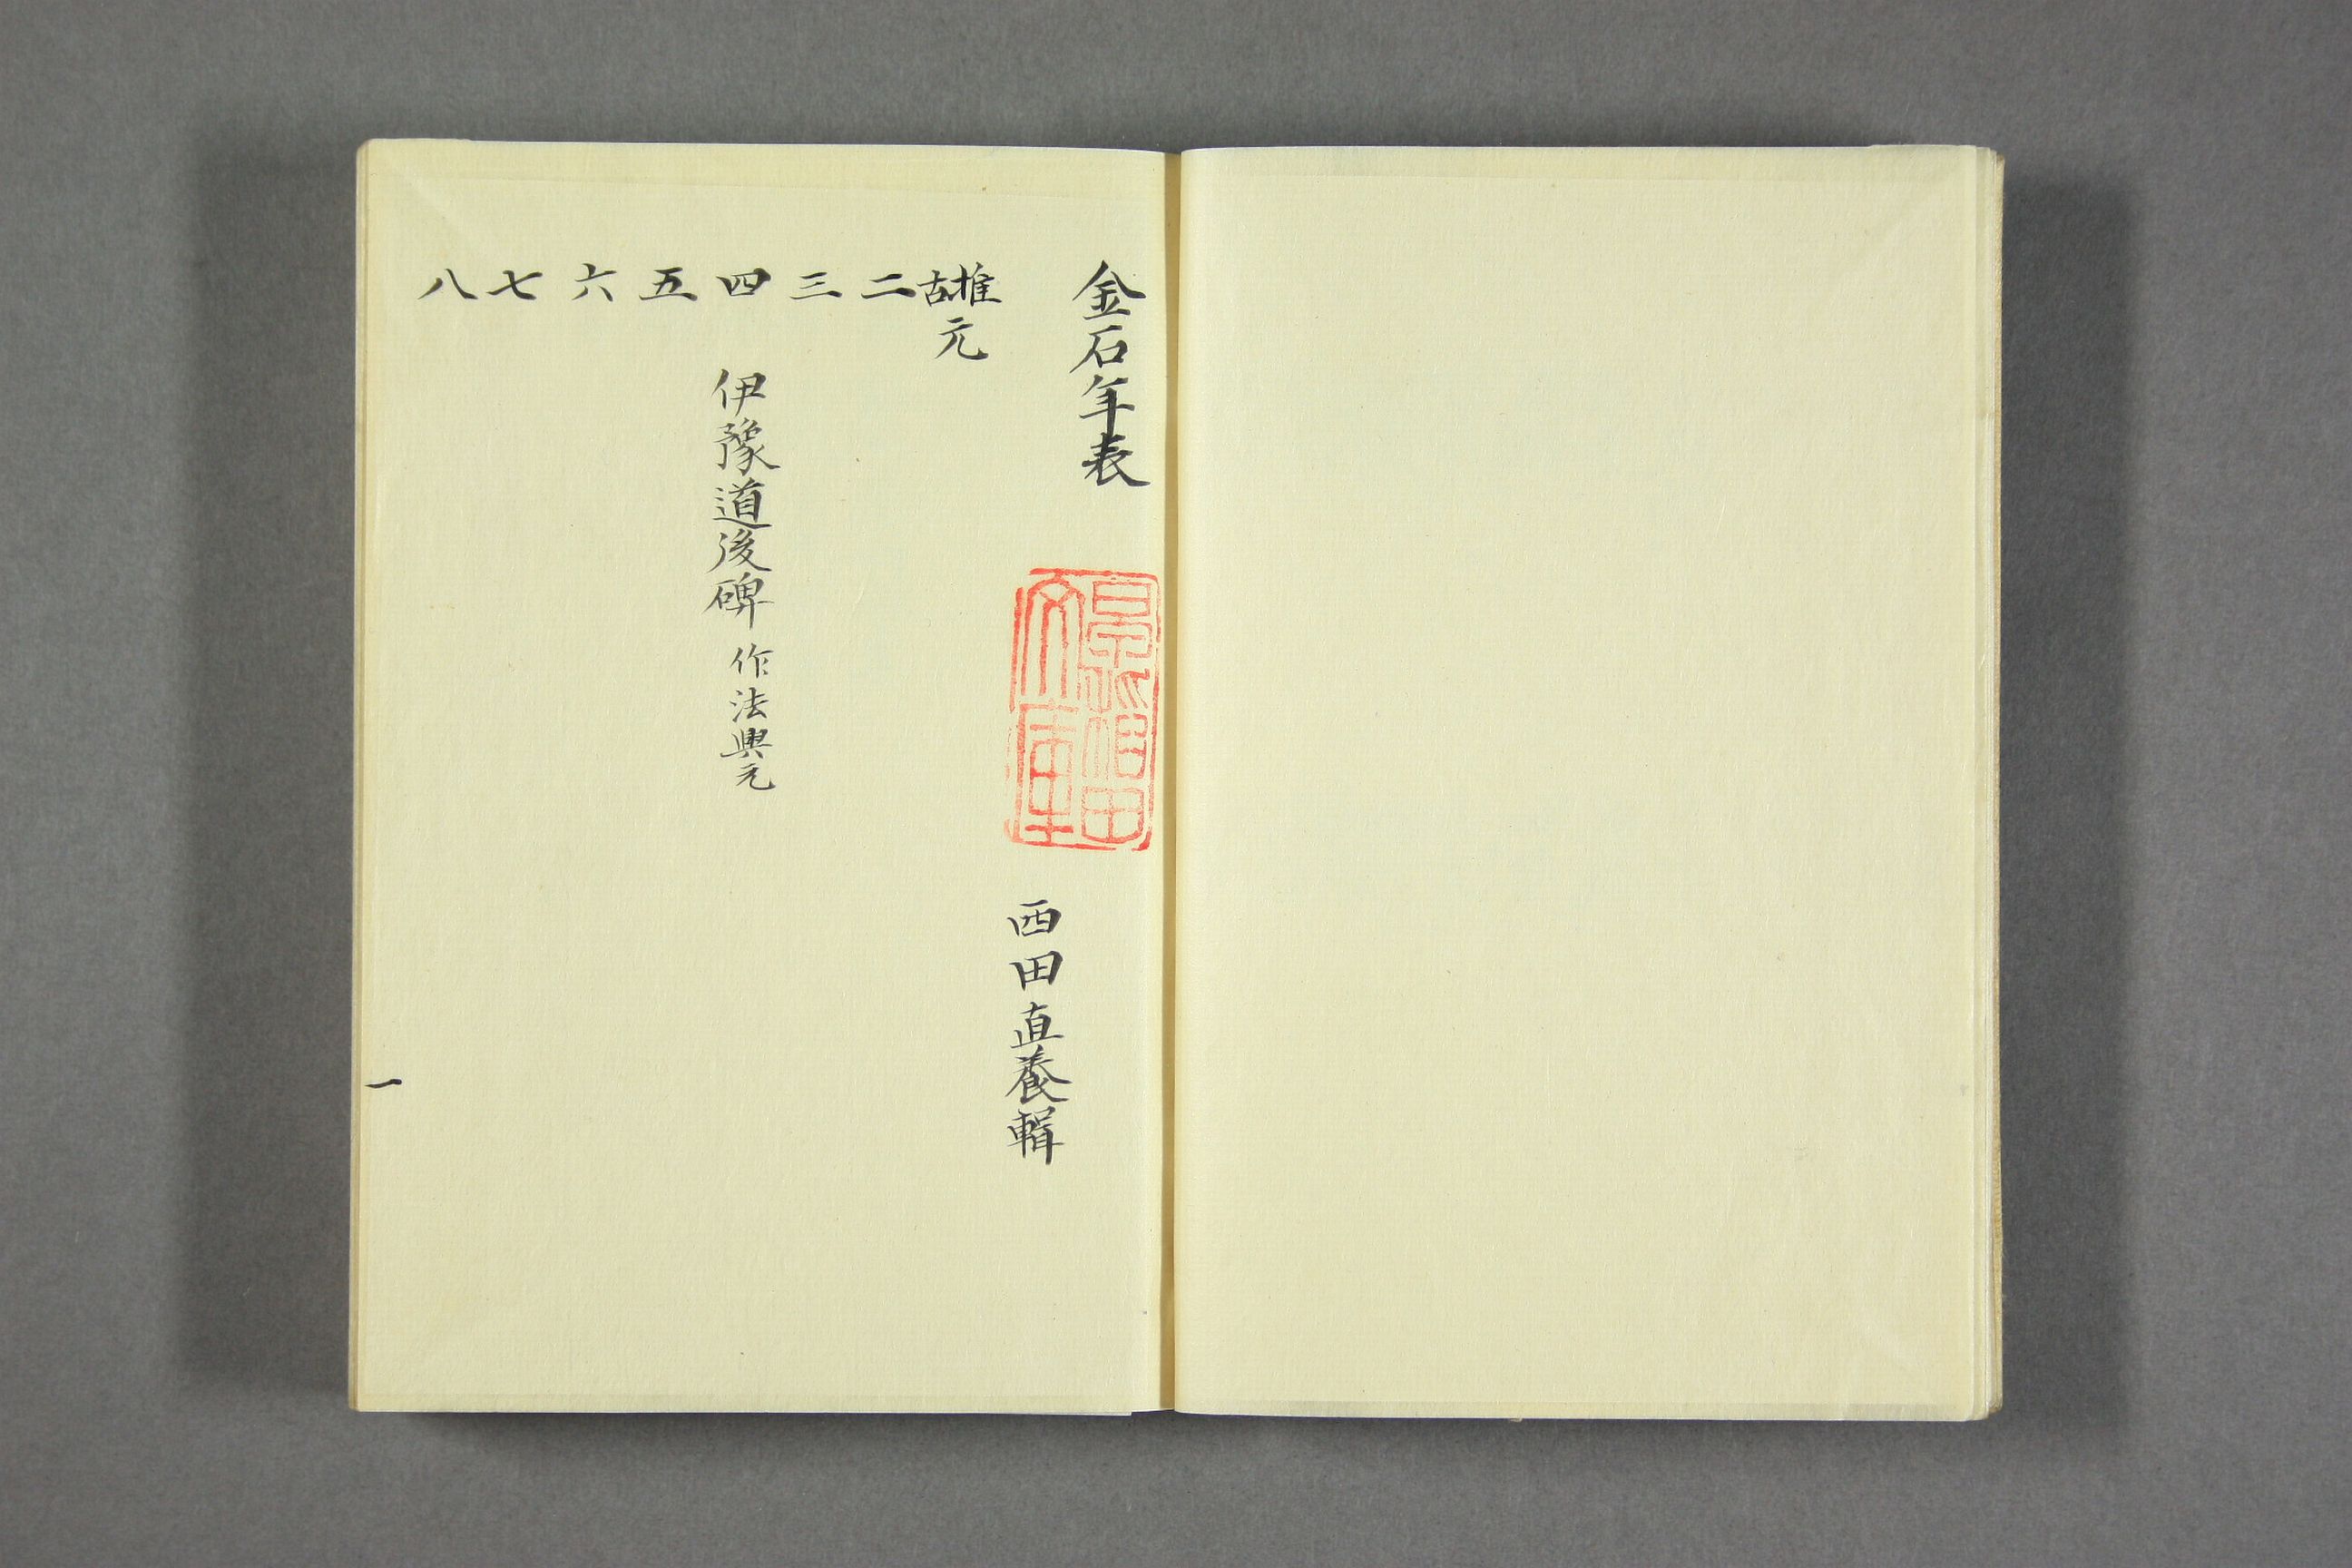 金石年表
文庫
西田直養輯
推古元
二
三
四 伊豫道後碑 作法興元
五
六
七
八
一